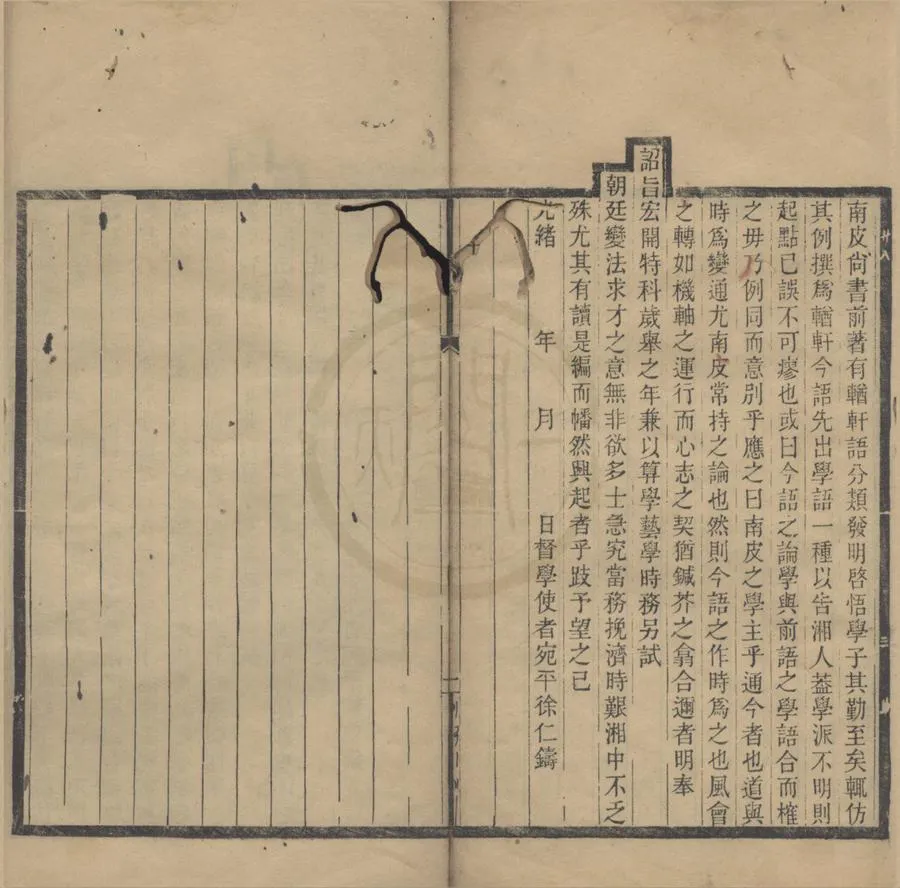 南皮尚書前著有輶軒語分類發明啓悟學子其勤至矣輒仿
其例撰爲輶軒今語先出學語一種以告湘人葢學派不明則
起點已誤不可瘳也或曰今語之論學與前語之學語合而榷
之毋乃例同而意別乎應之曰南皮之學主乎通今者也道與
時爲變通尤南皮常持之論也然則今語之作時爲之也風會
之轉如機軸之運行而心志之契猶鍼芥之翕合邇者明奉
詔旨宏開特科歲舉之年兼以算學藝學時務另試
朝廷變法求才之意無非欲多士急究當務挽濟時艱湘中不乏
殊尤其有讀是編而幡然興起者乎跂予望之已
光緒 年 月 日督學使者宛平徐仁鑄